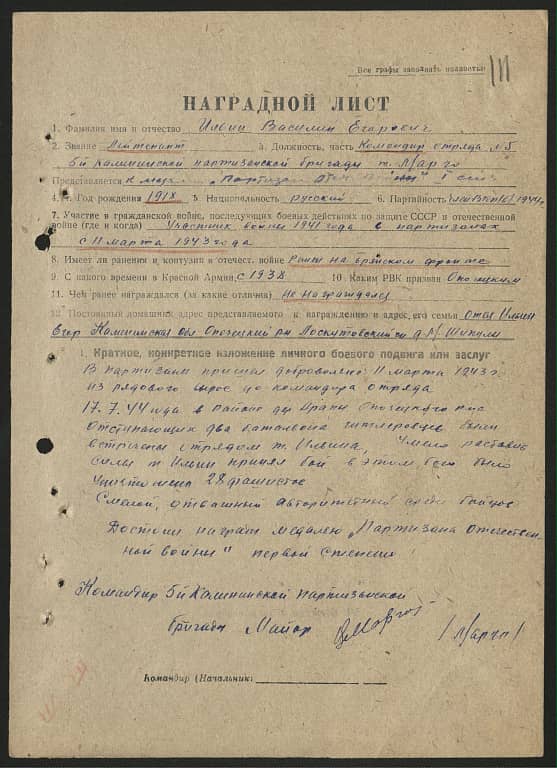 Все графы заполнять полностью
111
НАГРАДНОЙ ЛИСТ
1. Фамилия имя и отчество Ильин Василий Егорович
2. Звание Лейтенант 3. Должность, часть Командир отряда №5
5й Калининской партизанской бригады т. Марго
Представляется к мед. "Партиза Отеч войны" I
4. Год рождения 1918 5. Национальность русский 6. Партийность 1944
7. Участие в гражданской войне, последующих боевых действиях по защите СССР и отечественной
войне (где и когда) Участник войны 1941 года в партизанах
с 11 марта 1943 года
8. Имеет ли ранения и контузии в отечест. войне Ранен на Брянском фронте
9. С какого времени в Красной Армии с 1938 10. Каким РВК призван Опочецким
11. Чем ранее награждался (за какие отличия) Не награждался
12. Постоянный домашний адрес представляемого к награждению и адрес, его семьи отец Ильин
Егор Калининская обл Опочецкий р-н Лоскутовский с/с д. Шикули
1. Краткое, конкретное изложение личного боевого подвига или заслуг
В партизаны пришел добровольно 11 марта 1943 г.
из рядового вырос до командира отряда
17.7.44 года в районе дер Опочецкого р-на
Отступающих два батальона гитлеровцев были
встречены отрядом т. Ильина, Умело расставив
силы т Ильин принял бой в этом бою было
уничтожено 28 фашистов
Смелый, отважный авторитетный среди бойцов
Достоин награды медалью "Партизана Отечествен-
ной войны" первой степени!
Командир 5й Калининской партизанской
бригады Майор /Марго/
Командир (Начальник)